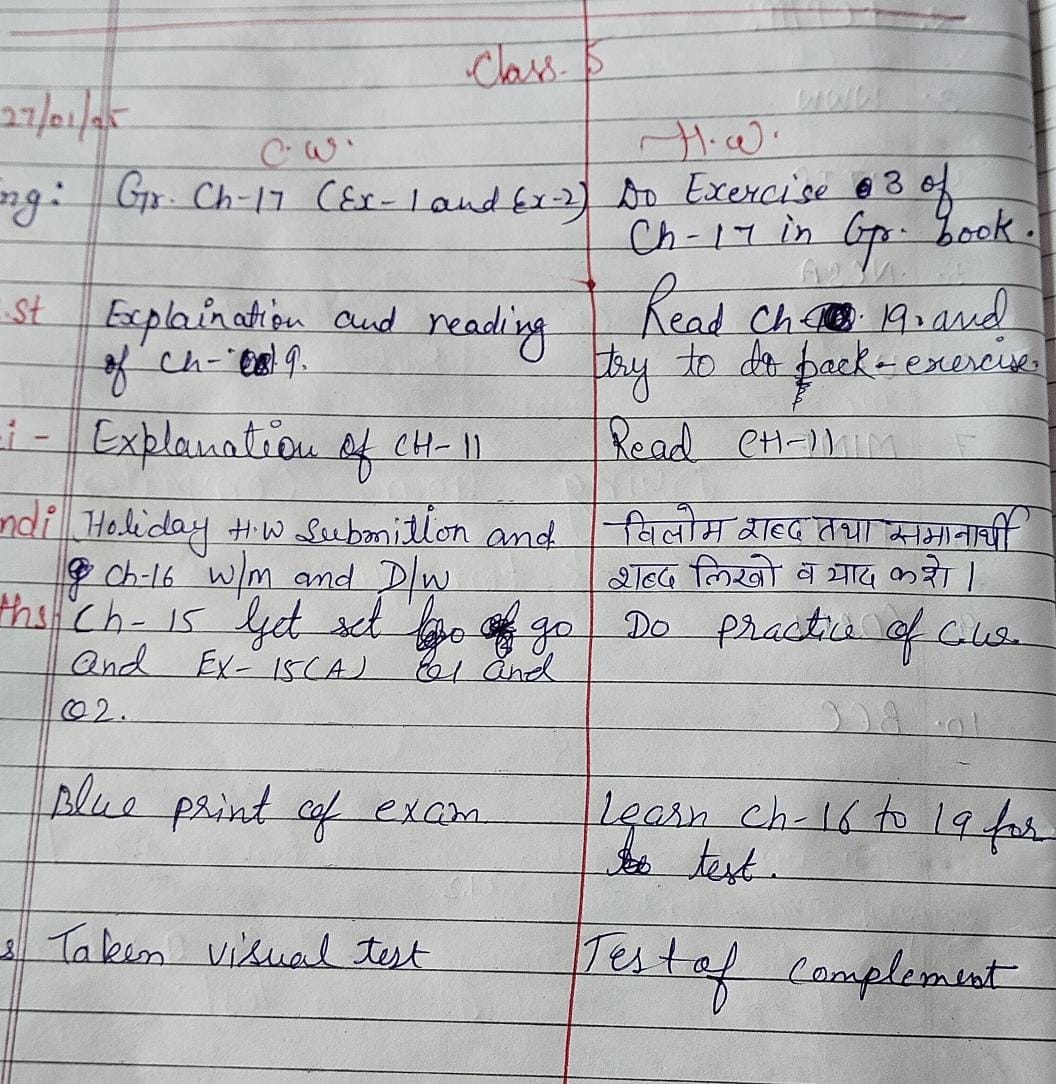 Class- 5
27/01/25
C.W. H.W.
ng: Gr. Ch-17 (Ex-1 and Ex-2) Do Exercise 3 of
Ch-17 in Gr. book.
.st Explaination and reading Read Ch 19. and
of Ch- 19. try to do back-exercise.
i- Explanation of CH-11 Read CH-11
ndi Holiday H.W Submittion and विलोम शब्द तथा समानार्थी
Ch-16 W/m and D/W शब्द लिखो व याद करो।
ths Ch-15 Get set go Do practice of C.W.
and EX-15(A) Q1 and
Q2.
Blue print of exam Learn ch-16 to 19 for
test.
s Taken visual test Test of complement